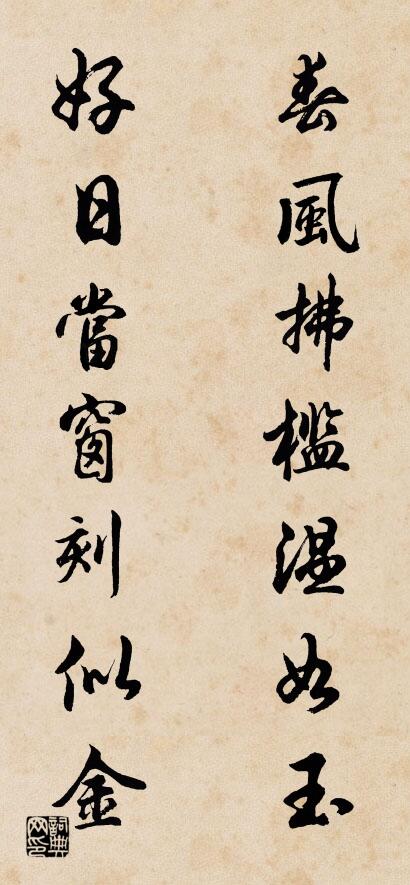 春風拂檻溫如玉
好日當窗刻似金
詞典网印